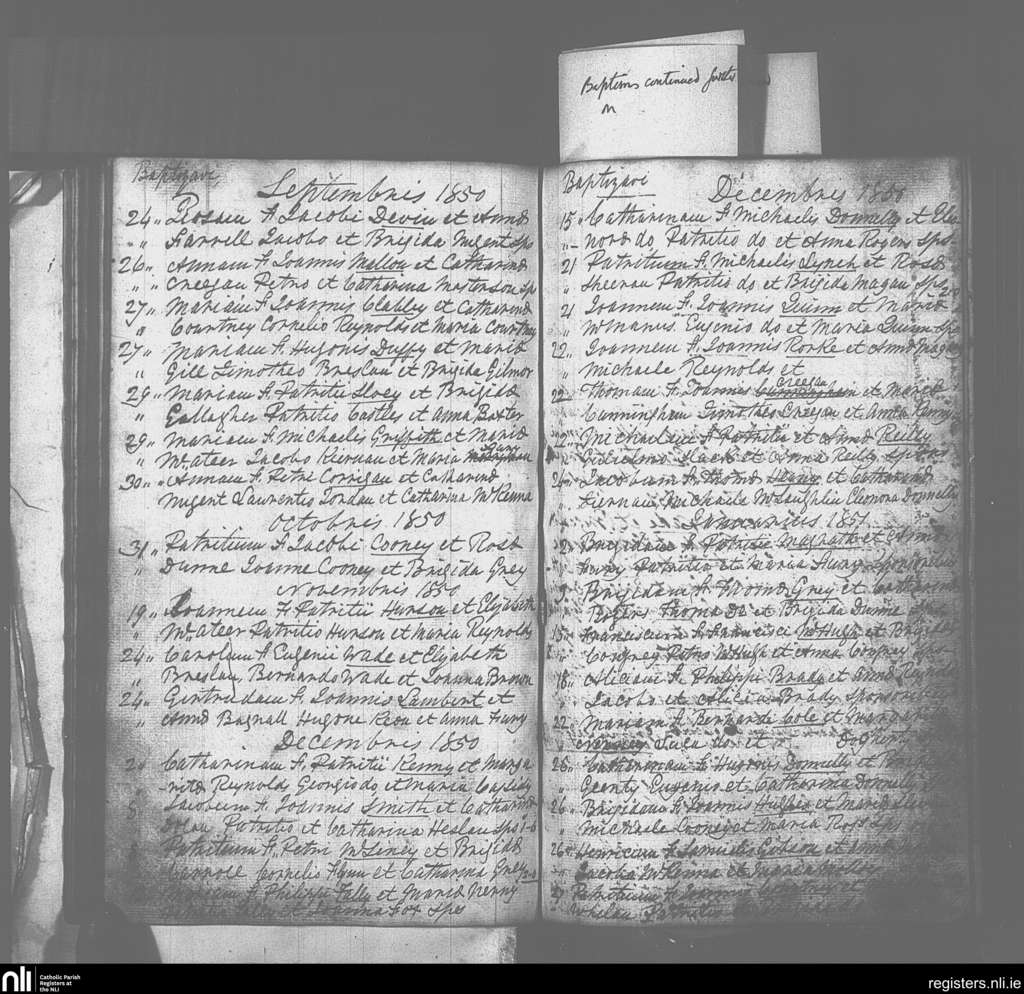 Baptisms continued further
on
Baptizavi
Septembris 1850
24 " Rosam F. Jacobi Devin et Annæ
" " Farrell Jacobo et Brigida Nugent Sps
26 " Annam F. Joannis Mallon et Catharinæ
" " Creegan Petro et Catharina Masterson Sp
27 " Mariam F. Joannis Clabley et Catharinæ
" Courtney Cornelio Reynolds et Maria Courtney
27 " Mariam F. Hugonis Duffy et Mariæ
" Gill Timotheo Breslau et Brigida Gilmor
29 " Mariam F. Patritii Sloey et Brigidæ
" Gallagher Patritio Castles et Anna Baxter
29 " Mariam F. Michaelis Griffith et Mariæ
" McAteer Jacobo Kiernan et Maria
30 " Annam F. Petri Corrigan et Catharinæ
Nugent Laurentio Jordan et Catharina McKenna
Octobris 1850
31 " Patritium F. Jacobi Cooney et Rosæ
" Dunne Joanne Cooney et Brigida Grey
Novembris 1850
19 " Joannem F. Patritii Hurson et Elizabeth
" McAteer Patritio Hurson et Maria Reynolds
24 " Carolum F. Eugenii Wade et Elizabeth
" Breslau, Bernardo Wade et Joanna Brown
24 " Gertrudam F. Joannis Lambert et
" Annæ Bagnall Hugone Keon et Anna Fury
Decembris 1850
2 " Catharinam F. Patritii Kenny et Marga
-ritæ Reynolds Georgio do et Maria Cassidy
8 " Jacobum F. Joannis Smith et Catharinæ
Dolan Patritio et Catharina Heslan Sps
Patritium F. Petri McLeney et Brigidæ
Carrole Cornelio Flynn et Catharina Grey
F. Philippi Tally et Mariæ Nerny
et Joanna Fox Sps
Baptizavi
Decembris 1850
15 " Catharinam F. Michaelis Donnelly et Elea
" - noræ do Patritio do et Anna Rogers Sps
21 Patritium F. Michaelis Lynch et Rosæ
" Sheeran Patritio do et Brigida Magan Sps
21 Joannem F. Joannis Quinn et Mariæ
" McManus Eugenio do et Maria Quinn Sps
22 " Joannem F. Joannis Rorke et Annæ Magan
" Michaele Reynolds et
22 " Thomam F. Joannis Creegan et Mariæ
" Cunningham Timotheo Creegan et Anna Kenny
Michaelem F. Patritii et Annæ Reilly
" Gulielmo Slack et Anna Reilly
24 " Jacobum F. Thomæ Henry et Catharinæ
Tiernan Michaele McLaughlin Elenora Donnelly
Januarius 1851
2 " Brigidam F. Patritii Magrath et Annæ
Fury Patritio et Maria Fury Sponsoribus
9 " Brigidam F. Thomæ Grey et Catharinæ
" Rogers Thoma do et Brigida Dunne Sps
15 " Franciscum F. Francisci McHugh et Brigidæ
" Confrey Petro McHugh et Anna Confrey Sps
18 " Aliciam F. Philippi Brady et Annæ Reynolds
" Jacobo et Alicia Brady Sponsoribus
22 " Mariam F. Bernardi Cole et Margaritæ
" Luca do et Dogherty
25 " Catharinam F. Hugonis Donnelly et
" Geanty Eugenio et Catharina Donnelly
26 " Brigidam F. Joannis Hughes et Mariæ
" Michaele Croney et Maria Ross Sps
26 " Henricum F. Samuelis Gibson et
" Jacobo McKenna et
27 " Patritium F. Joannis Courtney et
" Whelan Patritio
nli
Catholic Parish
Registers at
the NLI
registers.nli.ie